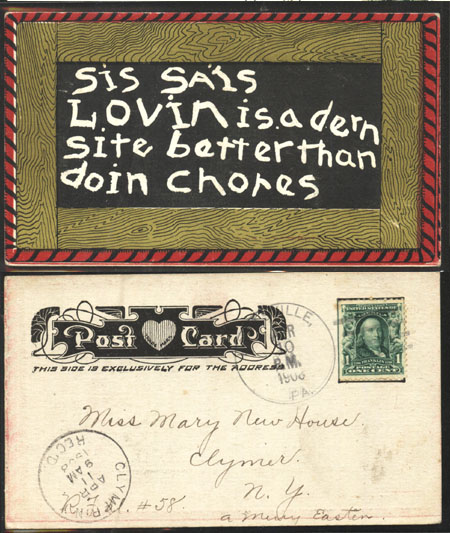 SiS SAIS
LOVIN is.a dern
site better than
doin chores
Post Card
THIS SIDE IS EXCLUSIVELY FOR THE ADDRESS
VILLE,
10
P.M.
1906
PA.
1
POSTAGE
ONE CENT
Miss Mary New House.
Clymer.
N. Y.
#58.
a merry Easter.
CLYM
N.Y.
APR
11
9 AM
REC'D